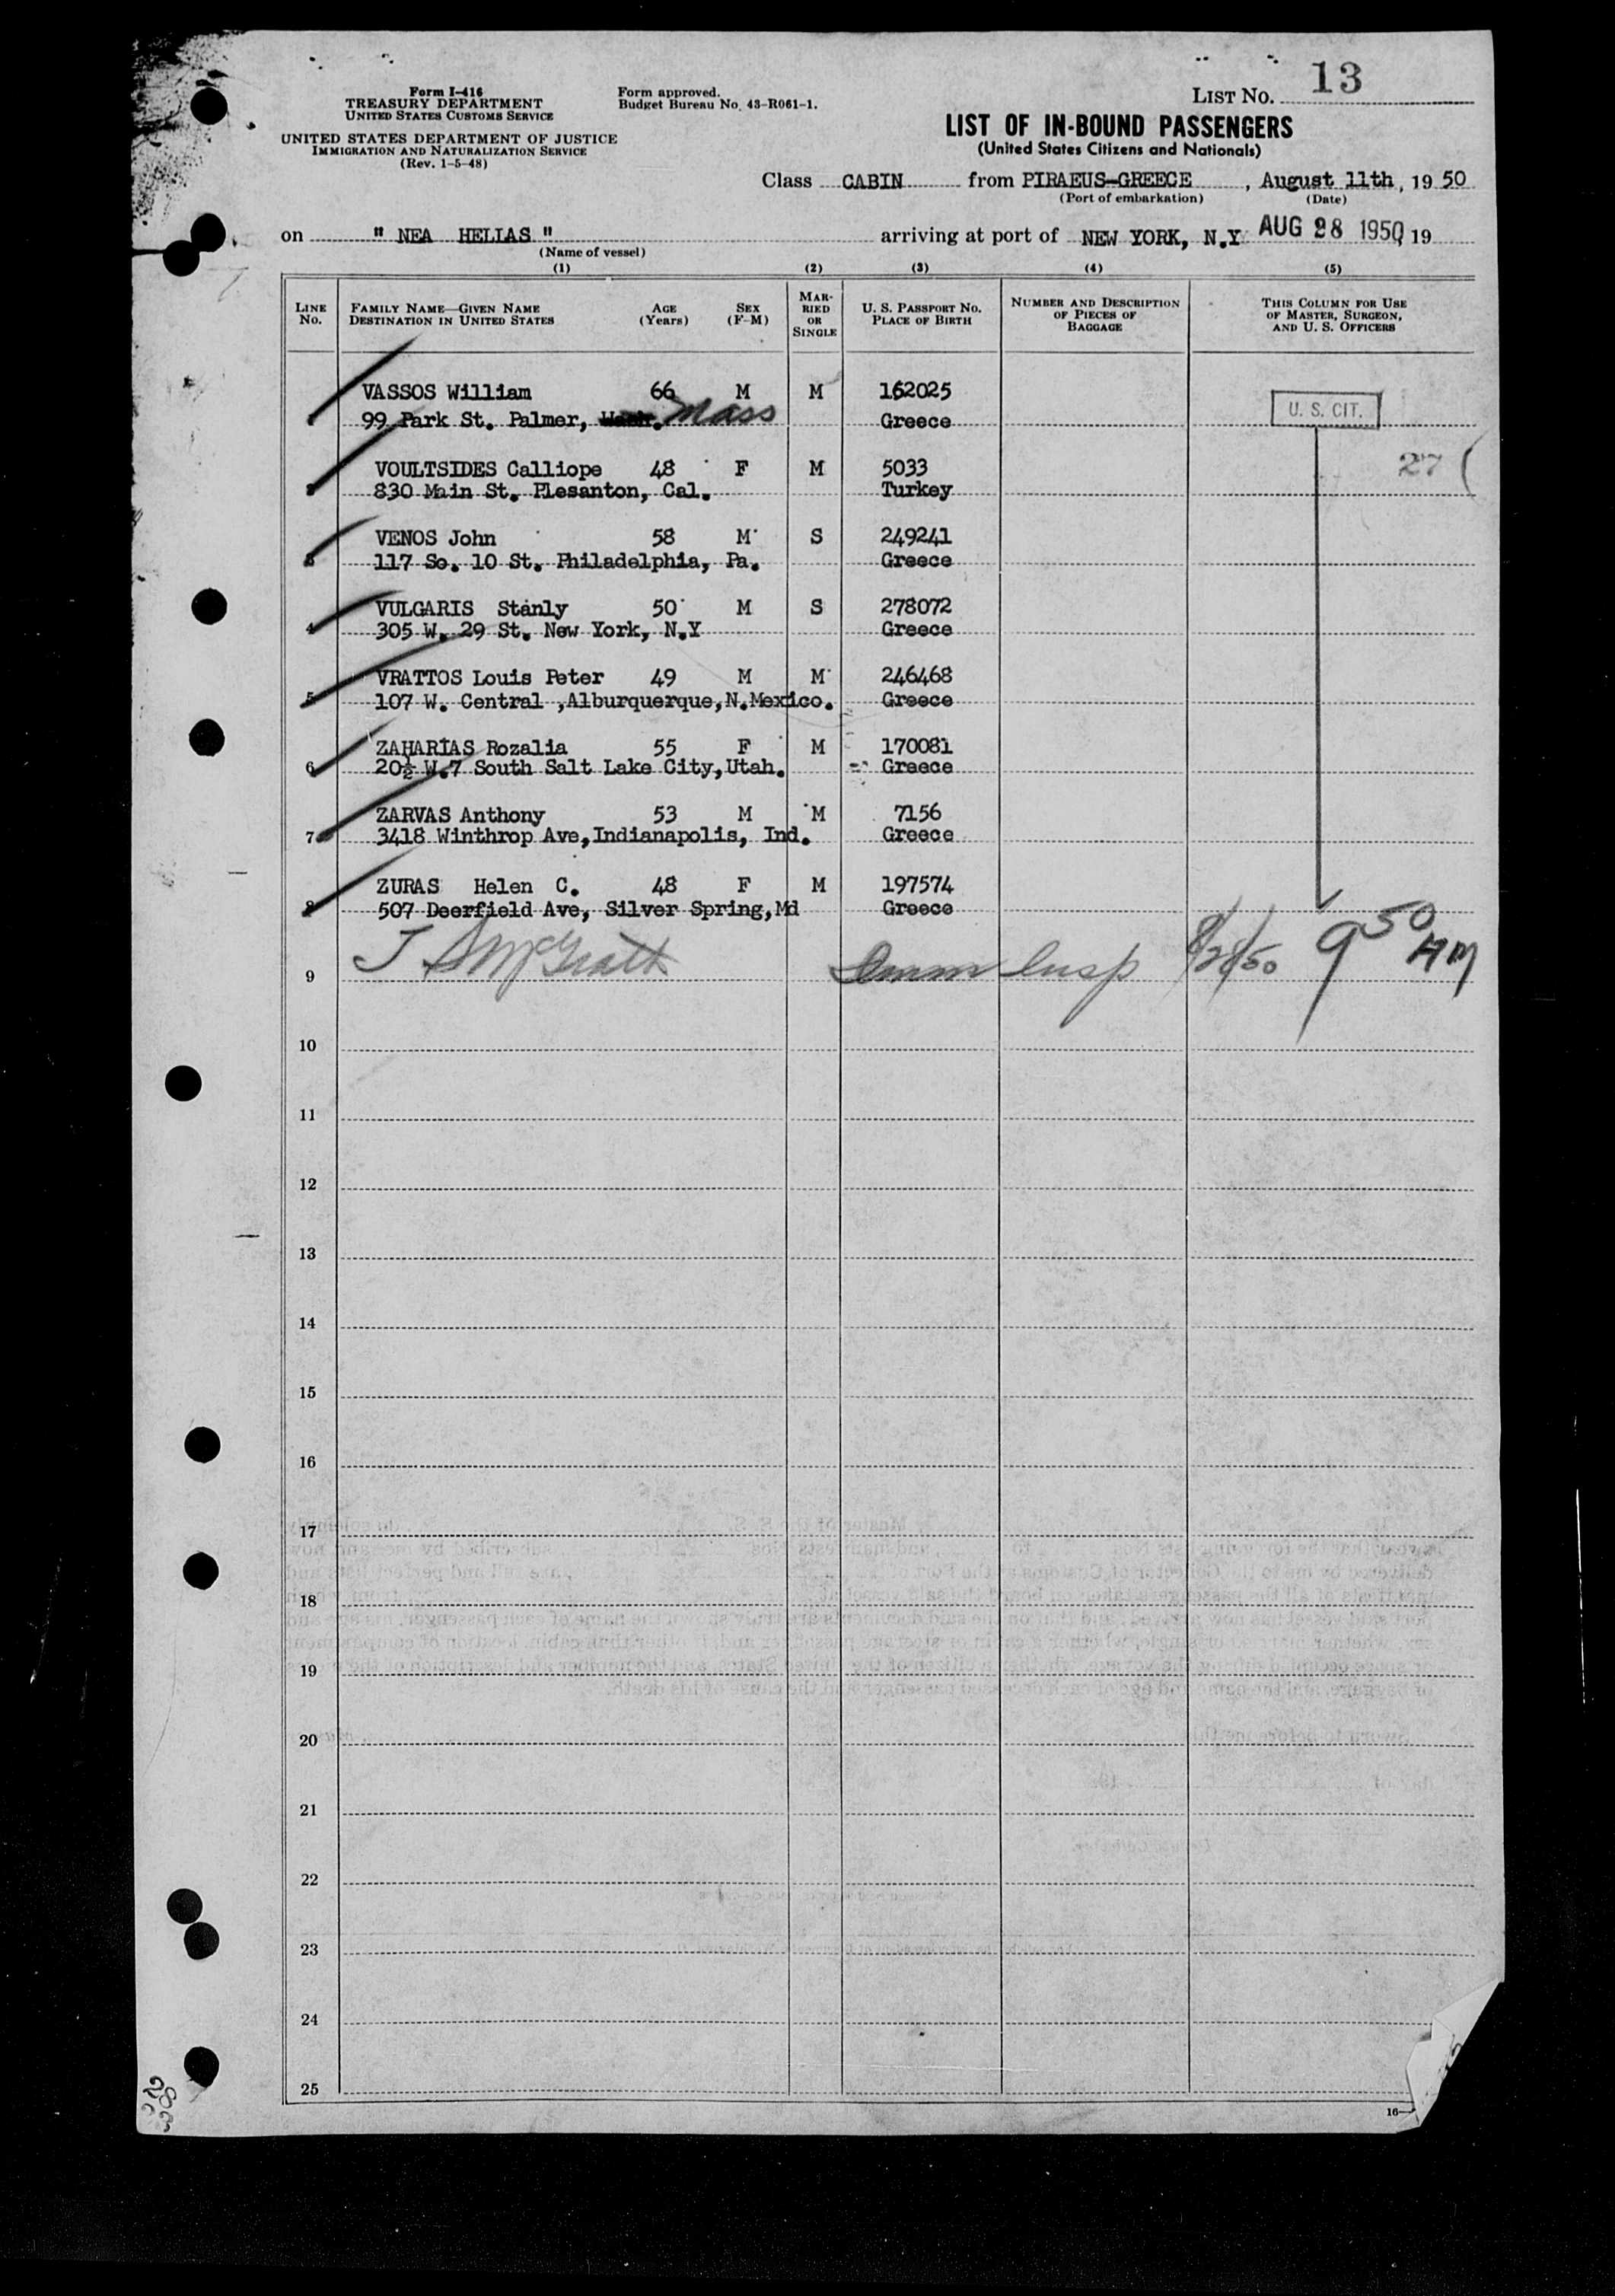 Form I-416
TREASURY DEPARTMENT
UNITED STATES CUSTOMS SERVICE
UNITED STATES DEPARTMENT OF JUSTICE
IMMIGRATION AND NATURALIZATION SERVICE
(Rev. 1-5-48)
Form approved.
Budget Bureau No. 43-R061-1.
LIST NO. 13
LIST OF IN-BOUND PASSENGERS
(United States Citizens and Nationals)
Class CABIN from PIRAEUS-GREECE, August 11th, 19 50
(Port of embarkation) (Date)
on " NEA HELIAS " arriving at port of NEW YORK, N.Y AUG 28 1950, 19
(Name of vessel)
(1) (2) (3) (4) (5)
LINE NO. FAMILY NAME—GIVEN NAME DESTINATION IN UNITED STATES AGE (Years) SEX (F-M) MARRIED OR SINGLE U. S. PASSPORT NO. PLACE OF BIRTH NUMBER AND DESCRIPTION OF PIECES OF BAGGAGE THIS COLUMN FOR USE OF MASTER, SURGEON, AND U. S. OFFICERS
VASSOS William 66 M M 162025
99 Park St. Palmer, Mass Greece U. S. CIT.
VOULTSIDES Calliope 48 F M 5033 27 (
830 Main St. Plesanton, Cal. Turkey
VENOS John 58 M S 249241
117 So. 10 St. Philadelphia, Pa. Greece
VULGARIS Stanly 50 M S 278072
4 305 W. 29 St. New York, N.Y Greece
VRATTOS Louis Peter 49 M M 246468
5 107 W. Central ,Alburquerque,N.Mexico. Greece
ZAHARIAS Rozalia 55 F M 170081
6 20½ W.7 South Salt Lake City,Utah. Greece
ZARVAS Anthony 53 M M 7156
7 3418 Winthrop Ave,Indianapolis, Ind. Greece
ZURAS Helen C. 48 F M 197574
8 507 Deerfield Ave, Silver Spring,Md Greece
9 Imm Insp 8/28/50 9 50 AM
10
11
12
13
14
15
16
17
18
19
20
21
22
23
24
25
16—